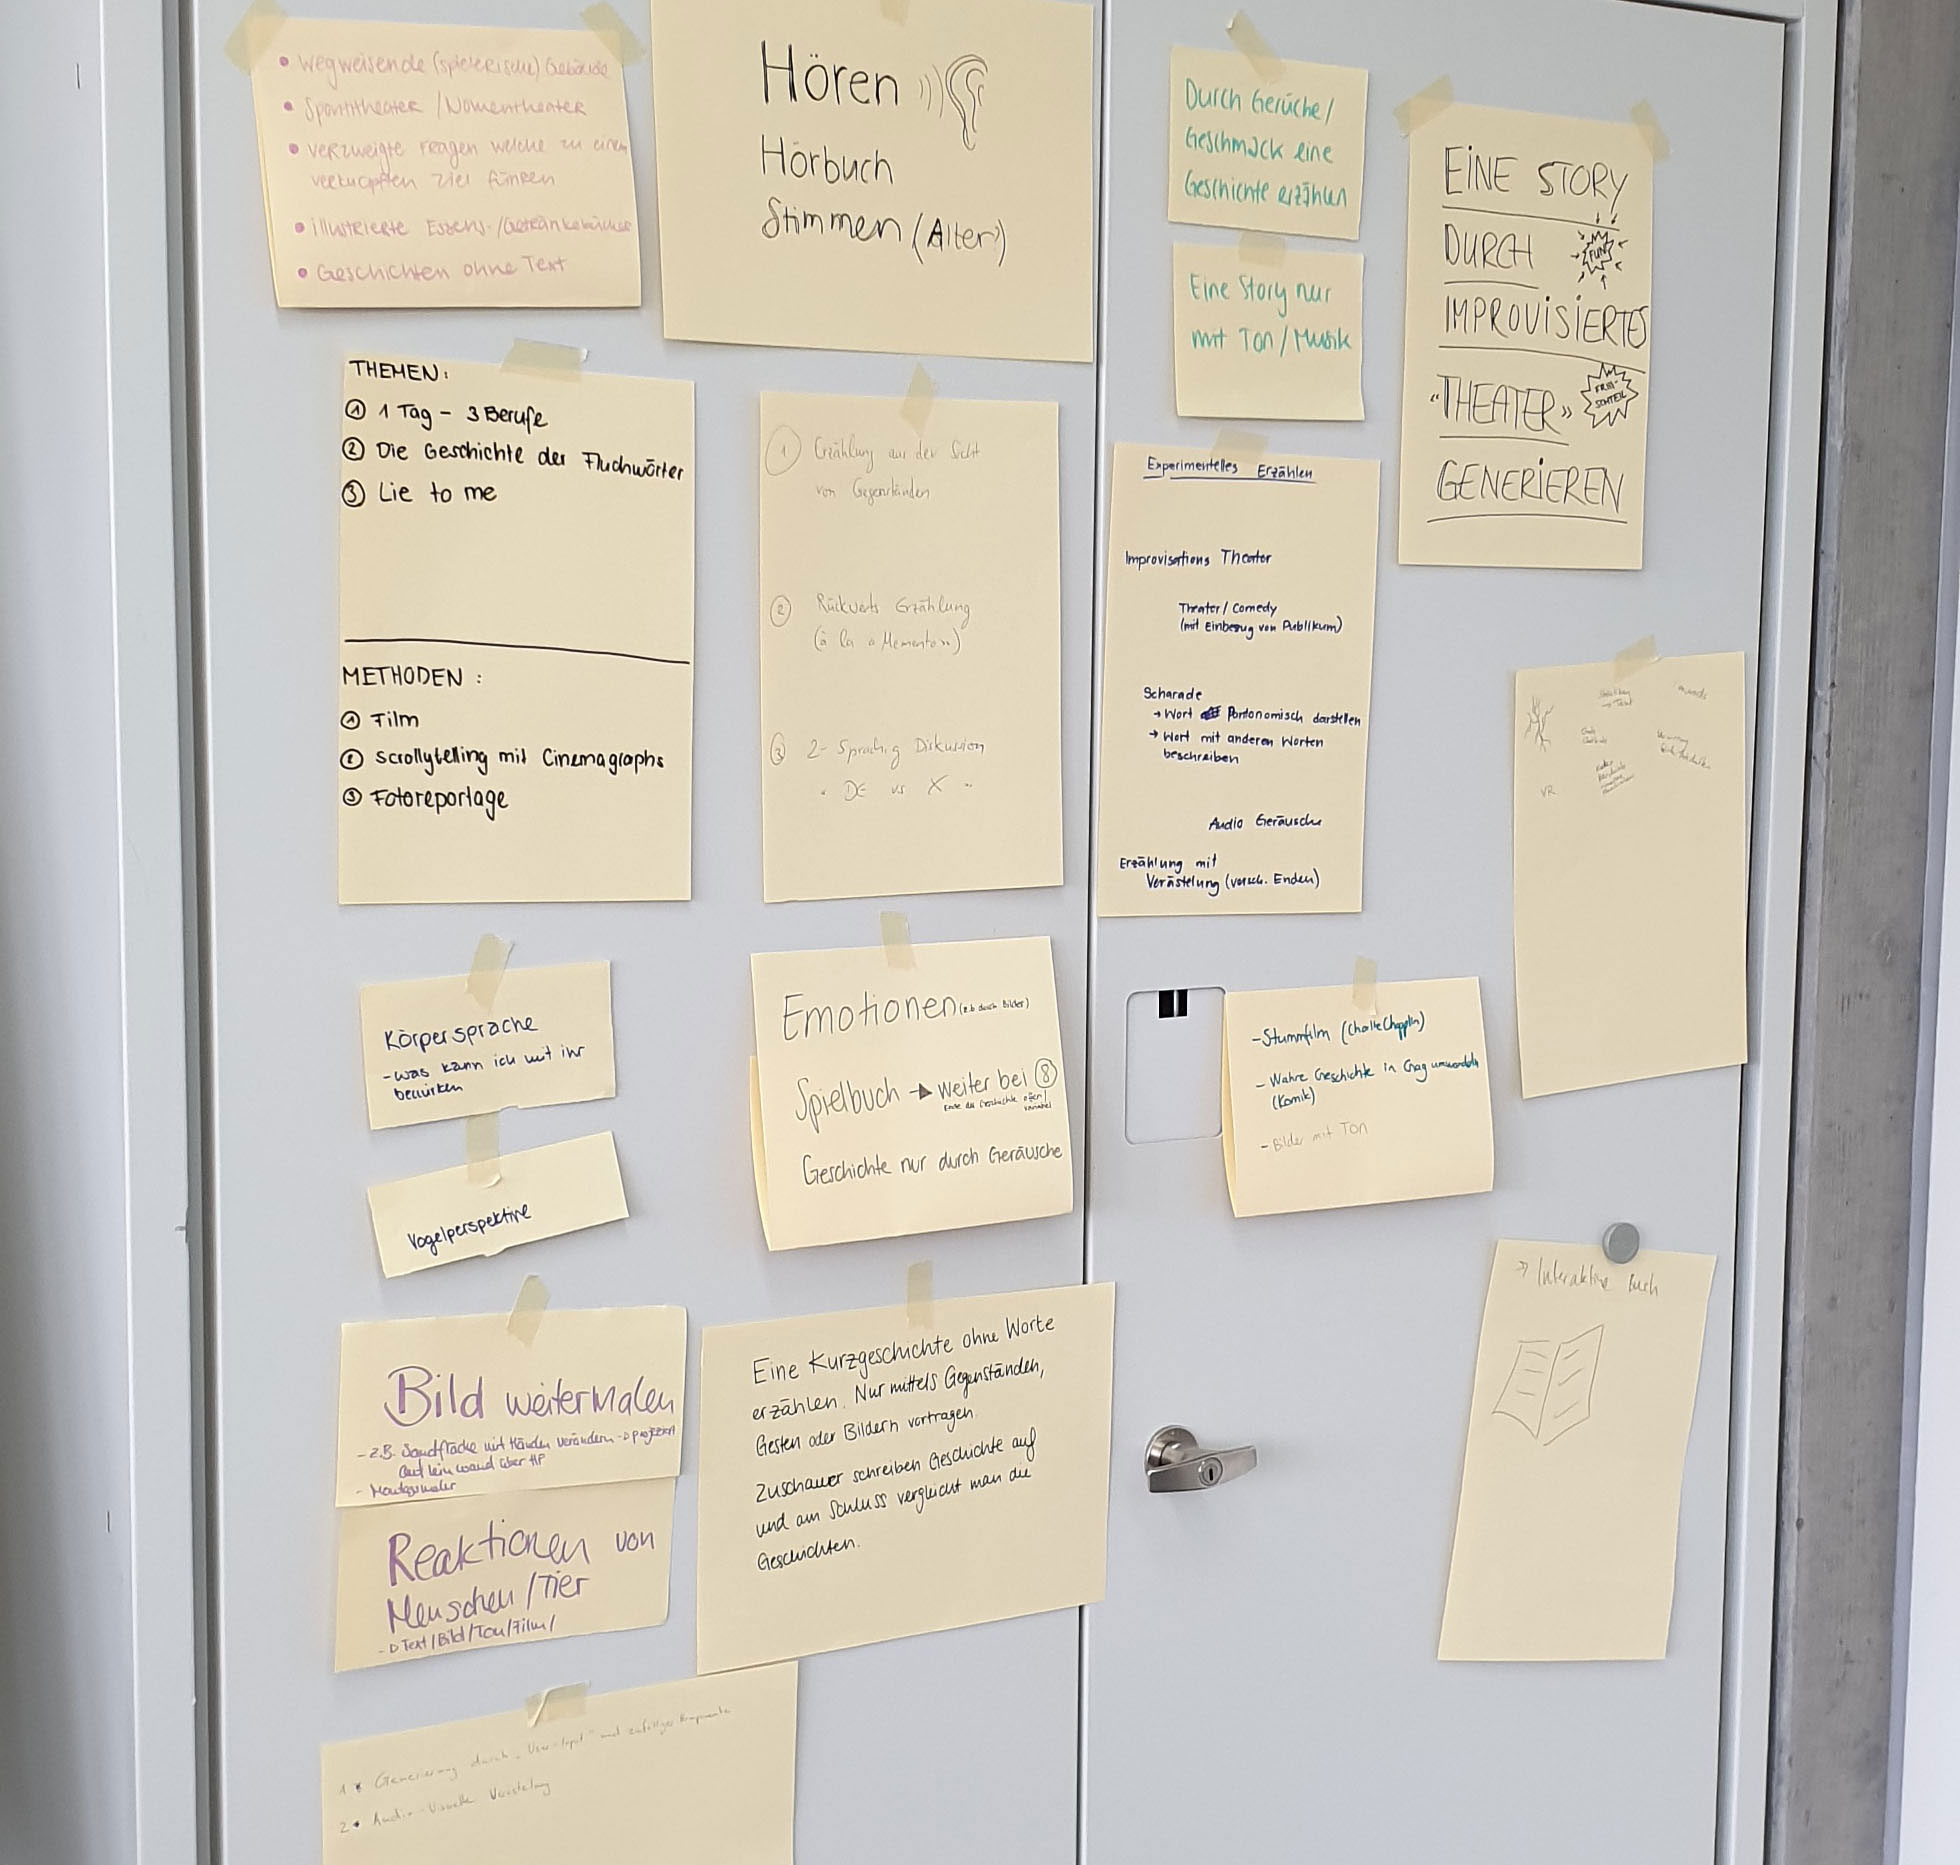 • Wegweisende (spielerische) Gebäude
• Spontitheater / Nomentheater
• verzweigte Fragen welche zu einem
verknüpften Ziel führen
• illustrierte Essens-/Getränkebücher
• Geschichten ohne Text
Hören
Hörbuch
Stimmen (Alter)
Durch Gerüche/
Geschmack eine
Geschichte erzählen
Eine Story nur
mit Ton / Musik
EINE STORY
DURCH
FUN
IMPROVISIERTES
«THEATER»
GENERIEREN
THEMEN:
① 1 Tag - 3 Berufe
② Die Geschichte der Fluchwörter
③ Lie to me
METHODEN :
① Film
② Scrollytelling mit Cinemagraphs
③ Fotoreportage
① Erzählung aus der Sicht
von Gegenständen
② Rückwerts Erzählung
(à la «Memento»)
③ 2-Sprachig Diskussion
DE vs X
Experimentelles Erzählen
Improvisations Theater
Theater / Comedy
(mit Einbezug von Publikum)
Scharade
→ Wort Pantonomisch darstellen
→ Wort mit anderen Worten
beschreiben
Audio Geräusche
Erzählung mit
Verästelung (versch. Enden)
VR
Körpersprache
- was kann ich mit ihr
bewirken
Vogelperspektive
Emotionen (z.b durch Bilder)
Spielbuch → weiter bei ⑧
Ende der Geschichte offen/
variabel
Geschichte nur durch Geräusche
- Stummfilm (Charlie Chapplin)
- Wahre Geschichte in Gag umwandeln
(Komik)
- Bilder mit Ton
→ Interaktive Buch
Bild weitermalen
- z.B. Sandfläche mit Händen verändern → projeziert
auf Leinwand über HP
Reaktionen von
Menschen / Tier
→ Text / Bild / Ton / Film /
Eine Kurzgeschichte ohne Worte
erzählen. Nur mittels Gegenständen,
Gesten oder Bildern vortragen.
Zuschauer schreiben Geschichte auf
und am Schluss vergleicht man die
Geschichten.
1• Generierung durch „User-Input" und zufälliger Komponente
2• Audio-Visuelle Verästelung